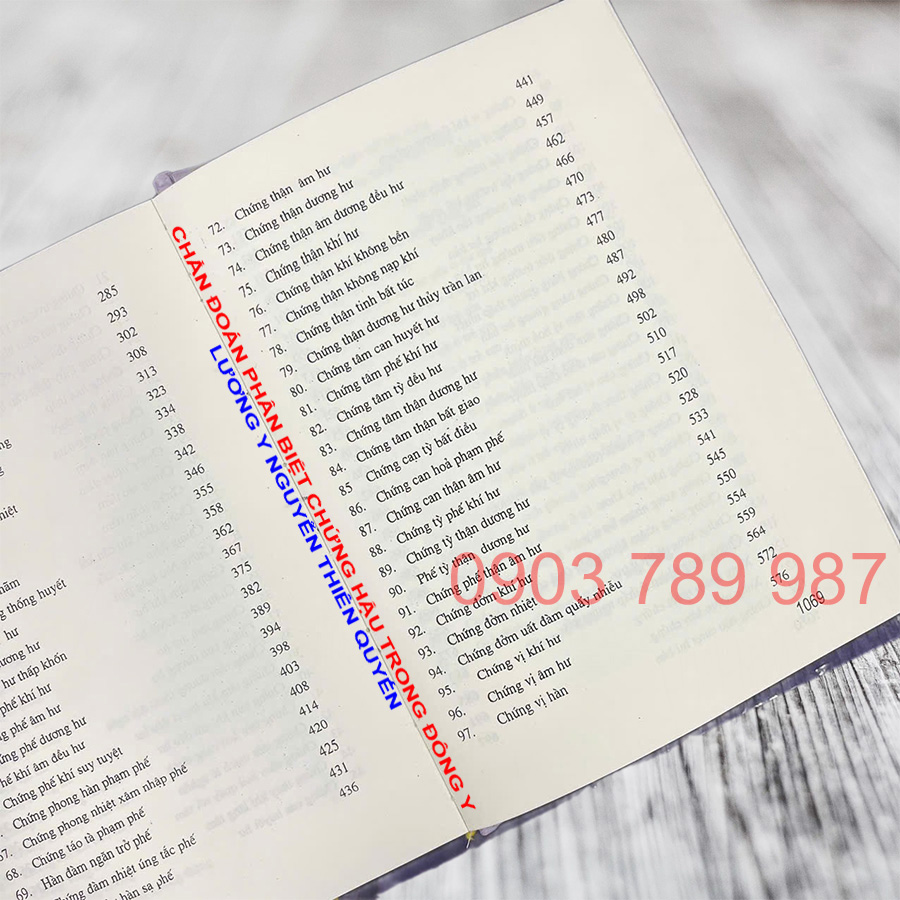 285
293
302
308
313
323
334
338
342
346
355
358
362
367
thống huyết 375
hư 382
hư thấp khốn 389
phế khí hư 394
phế âm hư 398
phế dương hư 403
khí âm đều hư 408
Chứng phế khí suy tuyệt 414
Chứng phong hàn phạm phế 420
67. Chứng phong nhiệt xâm nhập phế 425
68. Chứng táo tà phạm phế 431
69. Hàn đàm ngăn trở phế 436
Chứng đàm nhiệt úng tắc phế
hàn sạ phế
CHẨN ĐOÁN PHÂN BIỆT CHỨNG HẬU TRONG ĐÔNG Y
LƯƠNG Y NGUYỄN THIÊN QUYẾN
72. Chứng thận âm hư 441
73. Chứng thận dương hư 449
74. Chứng thận âm dương đều hư 457
75. Chứng thận khí hư 462
76. Chứng thận khí không bền 466
77. Chứng thận không nạp khí 470
78. Chứng thận tinh bất túc 473
79. Chứng thận dương hư thủy tràn lan 477
80. Chứng tâm can huyết hư 480
81. Chứng tâm phế khí hư 487
82. Chứng tâm tỳ đều hư 492
83. Chứng tâm thận dương hư 498
84. Chứng tâm thận bất giao 502
85 Chứng can tỳ bất điều 510
86. Chứng can hoả phạm phế 517
87. Chứng can thận âm hư 520
88. Chứng tỳ phế khí hư 528
89. Chứng tỳ thận dương hư 533
90. Phế tỳ thận dương hư 541
91. Chứng phế thận âm hư 545
92. Chứng đởm khí hư 550
93. Chứng đởm nhiệt 554
94. Chứng đởm uất đàm quấy nhiễu 559
95. Chứng vị khí hư 564
96. Chứng vị âm hư 572
97. Chứng vị hàn 576
1069
0903 789 987